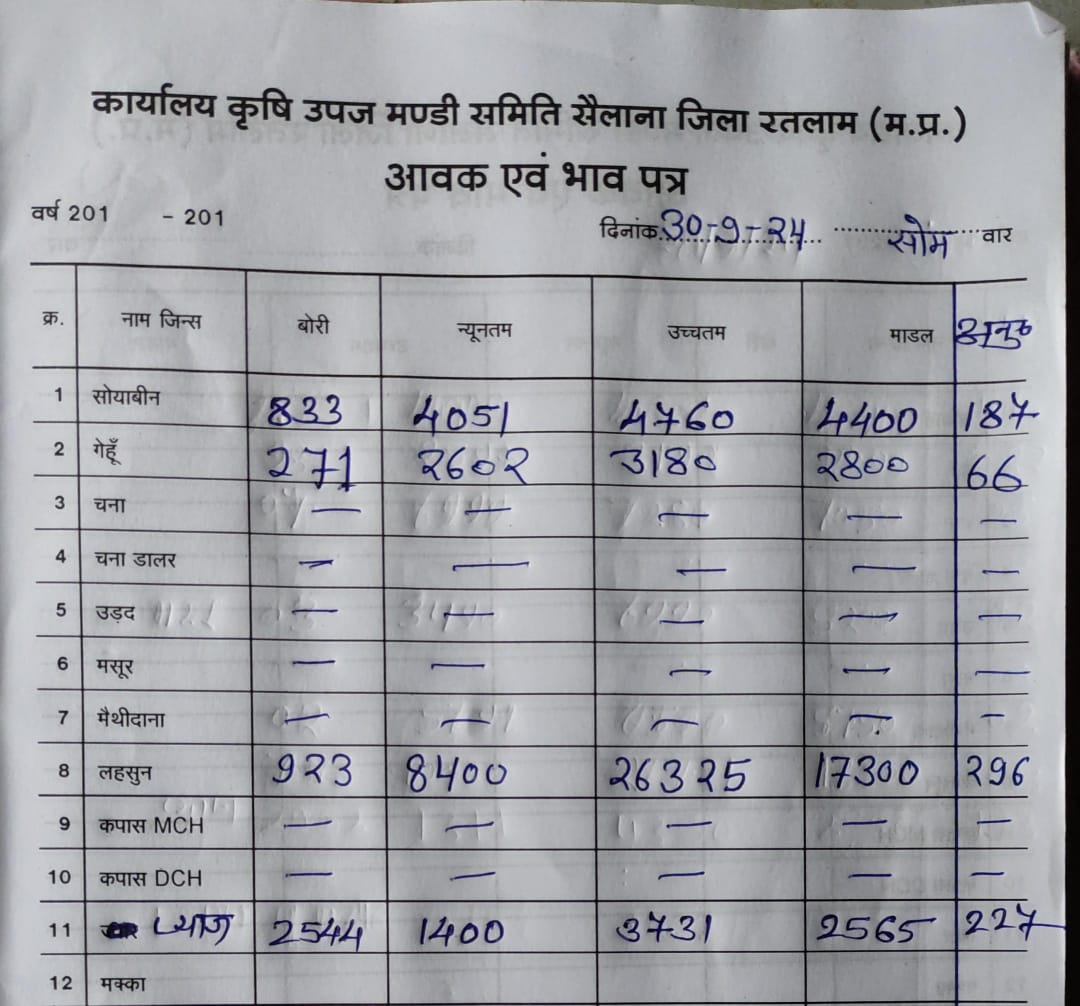 कार्यालय कृषि उपज मण्डी समिति सैलाना जिला रतलाम (म.प्र.)
आवक एवं भाव पत्र
वर्ष 201 - 201 दिनांक 30-9-24 सोम वार
क्र. नाम जिन्स बोरी न्यूनतम उच्चतम माडल अनु०
1 सोयाबीन 833 4051 4760 4400 187
2 गेहूँ 271 2602 3180 2800 66
3 चना — — — — —
4 चना डालर — — — — —
5 उड़द — — — — —
6 मसूर — — — — —
7 मैथीदाना — — — — —
8 लहसुन 923 8400 26325 17300 296
9 कपास MCH — — — — —
10 कपास DCH — — — — —
11 प्याज 2544 1400 3731 2565 227
12 मक्का